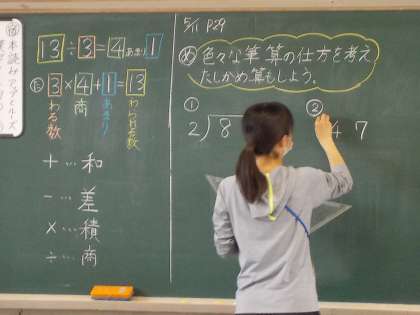 本読み
13÷3=4あまり1
た 3×4+1=13
わる数 商 あまり わられる数
+…和
-…差
×…積
÷…商
5/11 P29
め 色々な筆算の仕方を考え
たしかめ算もしよう。
① ②
2)8 47